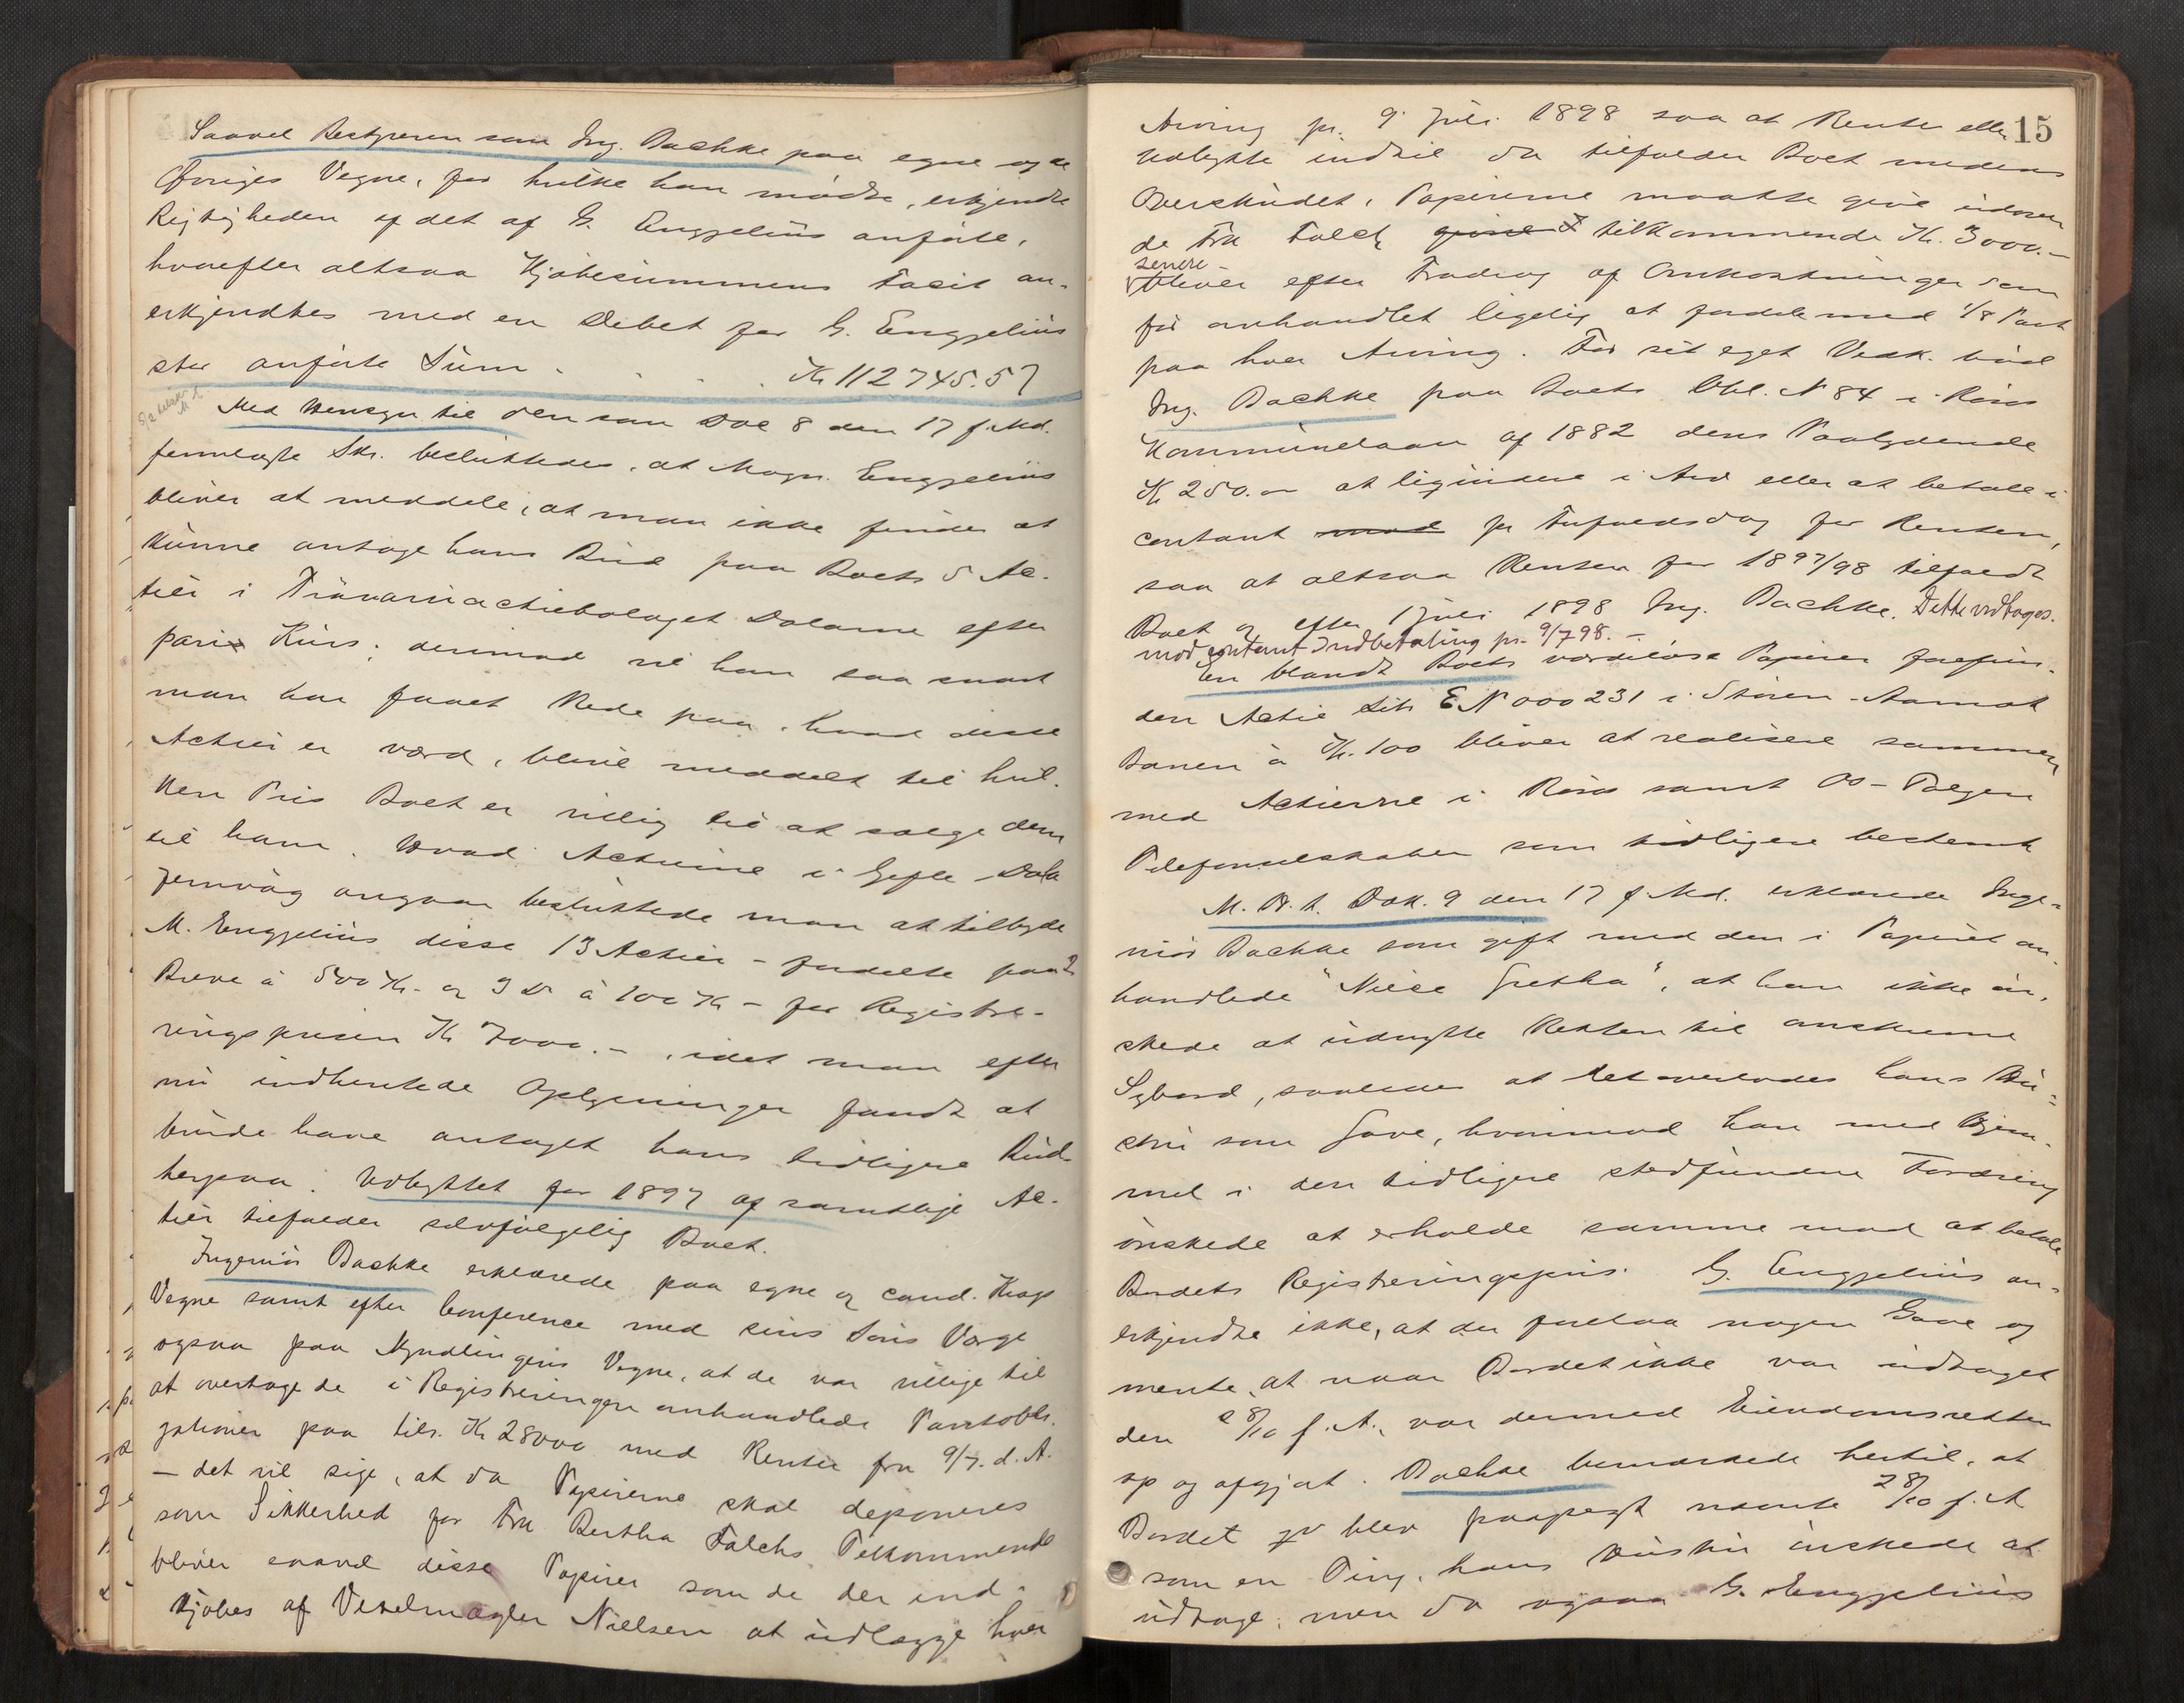 Saavel Bestyreren som Ing. Bachke paa egne og de
Øvriges Vegne, for hvilke han mødte, erkjendte
Rigtigheden af det af G. Engzelius anførte,
hvorefter altsaa Kjøbesummens Facit an-
erkjendtes med en Debet for G. Engzelius
stor anførte Sum . . . . Kr 112745.57
Med Hensyn til den som Doc 8 den 17 f. Md.
fremlagte Skr. besluttedes, at Magn. Engzelius
bliver at meddele, at man ikke finder at
kunne antage hans Bud paa Boets 5 Ac-
tier i Trävaruactiebolaget Dalarne efter
pari Kurs; derimod vil han saa snart
man har faaet Rede paa, hvad disse
Actier er værd, blive meddelt til hvil-
ken Pris Boet er villig til at sælge dem
til ham. Hvad Actierne i Gefle Dala
Jernväg angaar besluttede man at tilbyde
M. Engzelius disse 13 Actier - fordelte paa
Breve à 500 Kr. og 3 Do à 100 Kr - for Registre-
ringsprisen Kr 7000.- , idet man efter
nu indhentede Oplysninger fandt at
burde have antaget hans tidligere Bud
herpaa. Udbyttet for 1897 af samtlige Ac-
tier tilfalder selvfølgelig Boet.
Ingeniør Bachke erklærede paa egne og cand. Krags
Vegne samt efter Conference med sin Søns Værge
ogsaa paa Myndlingens Vegne, at de var villige til
at overtage de i Registreringen omhandlede Pantobli-
gationer paa tils. Kr 28000 med Renter fra 9/7. d. A.
- det vil sige, at da Papirerne skal deponeres
som Sikkerhed for Fru Bertha Falchs Tilkommende
bliver saavel disse Papirer som de der ind-
kjøbes af Vexelmægler Nielsen at udlægge hver
15
Arving pr. 9. Juli 1898 saa at Rente eller
Udbytte indtil da tilfalder Boet medens
Overskudet, Papirerne maatte give udover
de Fru Falch tilkommende Kr. 3000.-
senere
bliver efter Fradrag af Omkostninger som
før omhandlet ligelig at fordele med 1/8 Part
paa hver Arving. For sit eget Vedk. bød
Ing. Bachke paa Boets Obl. N 84 i Röros
Kommunelaan af 1882 dens Paalydende
Kr 250.- at likvidere i Arv eller at betale i
contant mod pr Forfaldsdag for Renten,
saa at altsaa Renten for 1897/98 tilfaldt
Boet og efter 1 Juli 1898 Ing. Bachke. Dette vedtoges.
mod contant Indbetaling pr. 9/7 98. -
En blandt Boets værdiløse Papirer forefun-
den Actie Litr E N 000231 i Stören-Aamot
Banen à Kr. 100 bliver at realisere sammen
med Actierne i Röros samt Os-Tolgen
Telefonselskaber som tidligere bestemt
M. H. t. Dok. 9 den 17 f. Md. erklærede Inge-
niør Bachke som gift med den i Papiret om-
handlede "Niece Gretha", at han ikke øn-
skede at udnytte Retten til omskrevne
Sybord, saaledes at det overlodes hans Hu-
stru som Gave, hvorimod han med Hjem-
mel i den tidligere stedfundne Fordeling
ønskede at erholde samme mod at betale
Bordets Registreringspris. G. Engzelius an-
erkjendte ikke, at der forelaa nogen Gave og
mente, at naar Bordet ikke var udtaget
den 28/10 f. A., var dermed Eiendomsretten
op og afgjort. Bachke bemærkede hertil, at
Bordet blev paapegt nævnte 28/10 f. A
som en Ting, hans Hustru ønskede at
udtage; men da ogsaa G. Engzelius